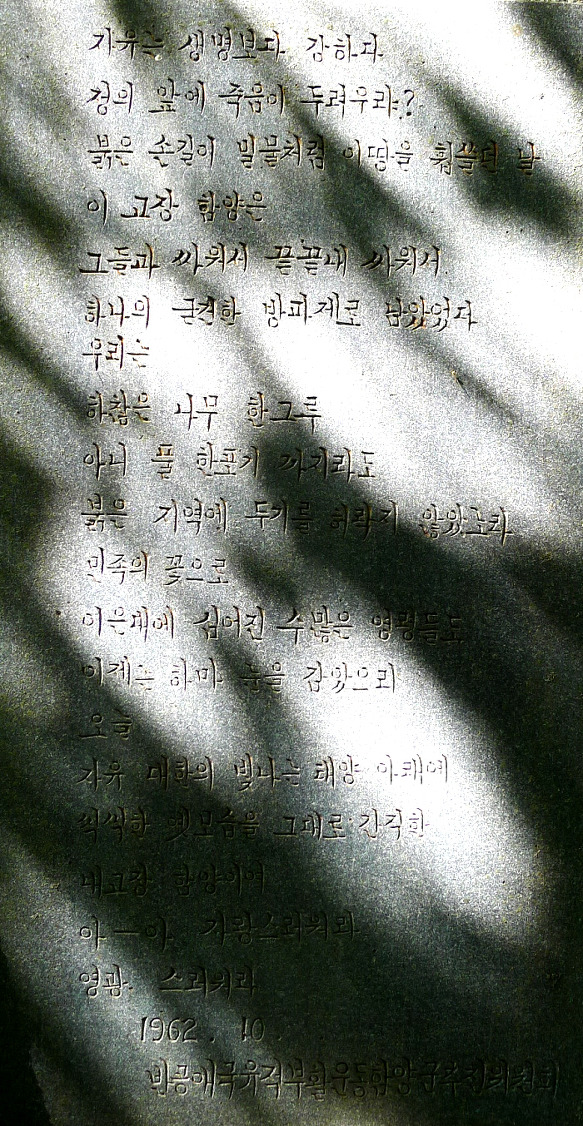 자유는 생명보다 강하다
정의 앞에 죽음이 두려우랴?
붉은 손길이 밀물처럼 이땅을 휩쓸던 날
이 고장 함양은
그들과 싸워서 끝끝내 싸워서
하나의 굳건한 방파제로 남았었다
우리는
하찮은 나무 한그루
아니 풀 한포기 까지라도
붉은 기억에 두기를 허락지 않았노라
민족의 꽃으로
이은재에 심어진 수많은 영령들도
이제는 하마 눈을 감았으리
오늘
자유 대한의 빛나는 태양 아래에
씩씩한 옛모습을 그대로 간직한
내고장 함양이여
아—아 자랑스러워라
영광 스러워라
1962. 10.
반공애국유적부활운동함양군추진위원회